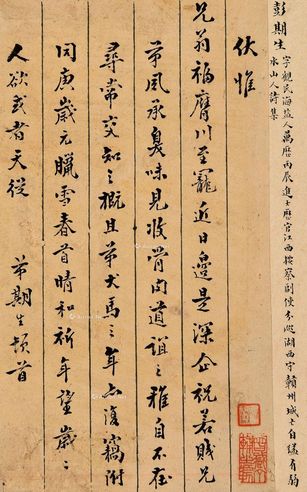 彭期生
字觀民海盐人萬曆丙辰進士歷官江西按察副使分巡湖西守贛州城亡自縊有弱
水山人詩集
伏惟
兄翁福膺川至寵近日邊是深企祝若賤兄
弟夙承臭味見收骨肉道誼之雅自不在
尋常交知之概且弟犬馬之年亦復竊附
同庚歲元臘雪春首晴和祈年望歲之
人欲或者天從 弟期生頓首